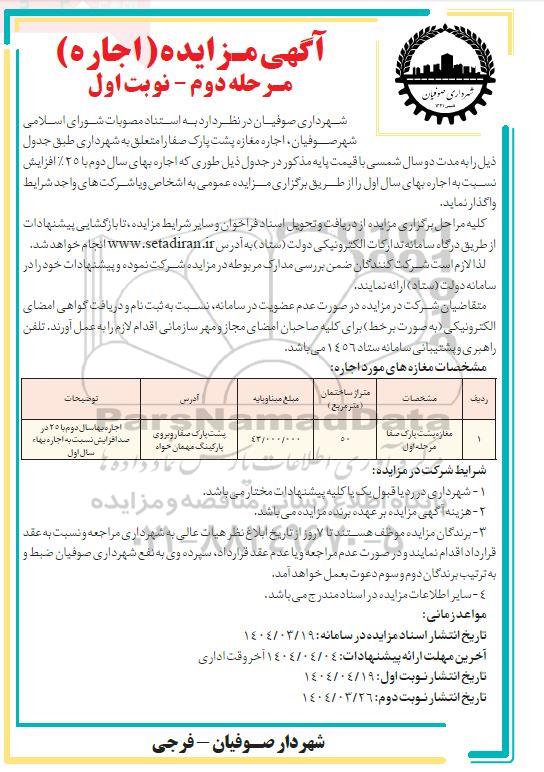 آگهی مـزایده (اجاره)
مـرحله دوم - نوبت اول
شهرداری صوفیان
تاسیس ۱۳۳۱
شــهرداری صوفیــان در نظــر دارد بــه اســتناد مصوبات شــورای اســلامی
شهر صــوفیان، اجاره مغازه پشت پارک صفا را متعلق به شهرداری طبق جدول
ذیل را به مدت دو سال شمسی با قیمت پایه مذکور در جدول ذیل طوری که اجاره بهای سال دوم با ۲۵٪ افزایش
نسـبت به اجاره بهای سال اول را از طــریق برگزاری مــزایده عمومی به اشخاص و یا شرکت های واجد شرایط
واگذار نماید.
کلیه مراحل برگزاری مزایده از دریافت و تحویل اسناد فراخوان و سایر شرایط مزایده، تا بازگشایی پیشنهادات
از طریق درگاه سامانه تدارکات الکترونیکی دولت (ستاد) به آدرس www.setadiran.ir انجام خواهد شد.
لذا لازم است شرکت کنندگان ضمن بررسی مدارک مربوطه در مزایده شـرکت نموده و پیشنهادات خود را در
سامانه دولت (ستاد) ارائه نمایند.
متقاضیان شــرکت در مزایده در صورت عدم عضویت در سامانه، نسـبت به ثبت نام و دریافت گواهی امضای
الکترونیکی (به صورت بر خط) برای کلیه صاحبان امضای مجاز و مهر سازمانی اقدام لازم را به عمل آورند. تلفن
راهبری و پشتیبانی سامانه ستاد ۱۴۵۶ می باشد.
مشخصات مغازه های مورد اجاره:
ردیف مشخصات متراژ ساختمان (مترمربع) مبلغ مبنا و پایه آدرس توضیحات
۱ مغازه پشت پارک صفا مرحله اول ۵۰ ۴۳/۰۰۰/۰۰۰ پشت پارک صفا روبروی پارکینگ مهمان خواه اجاره بها سال دوم با ۲۵ در صد افزایش نسبت به اجاره بهاء سال اول
ParsNamadData
شرایط شرکت در مزایده:
۱- شهرداری در رد یا قبول یک یا کلیه پیشنهادات مختار می باشد.
۲- هزینه آگهی مزایده بر عهده برنده مزایده می باشد.
۳- برندگان مزایده موظف هســتند تا ۷ روز از تاریخ ابلاغ نظر هیات عالی به شهرداری مراجعه و نسبت به عقد
قرارداد اقدام نمایند و در صورت عدم مراجعه و یا عدم عقد قرارداد، سپرده وی به نفع شهرداری صوفیان ضبط و
به ترتیب برندگان دوم و سوم دعوت بعمل خواهد آمد.
۴- سایر اطلاعات مزایده در اسناد مندرج می باشد.
مواعد زمانی:
تاریخ انتشار اسناد مزایده در سامانه: ۱۴۰۴/۰۳/۱۹
آخرین مهلت ارائه پیشنهادات: ۱۴۰۴/۰۴/۰۴ آخر وقت اداری
تاریخ انتشار نوبت اول: ۱۴۰۴/۰۳/۱۹
تاریخ انتشار نوبت دوم: ۱۴۰۴/۰۳/۲۶
شهردار صــوفیان – فرجی